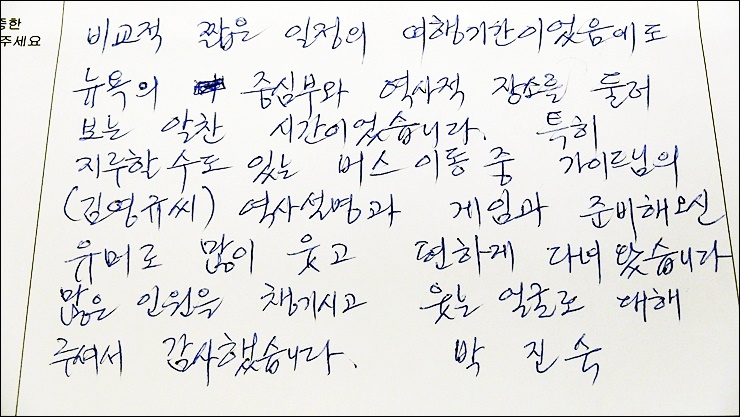 중한
주세요
비교적 짧은 일정의 여행기간이었음에도
뉴욕의 중심부와 역사적 장소를 둘러
보는 알찬 시간이었습니다. 특히
지루할 수도 있는 버스 이동 중 가이드님의
(김영규씨) 역사설명과 게임과 준비해오신
유머로 많이 웃고 편하게 다녀 왔습니다
많은 인원을 챙기시고 웃는 얼굴로 대해
주셔서 감사했습니다. 박진숙